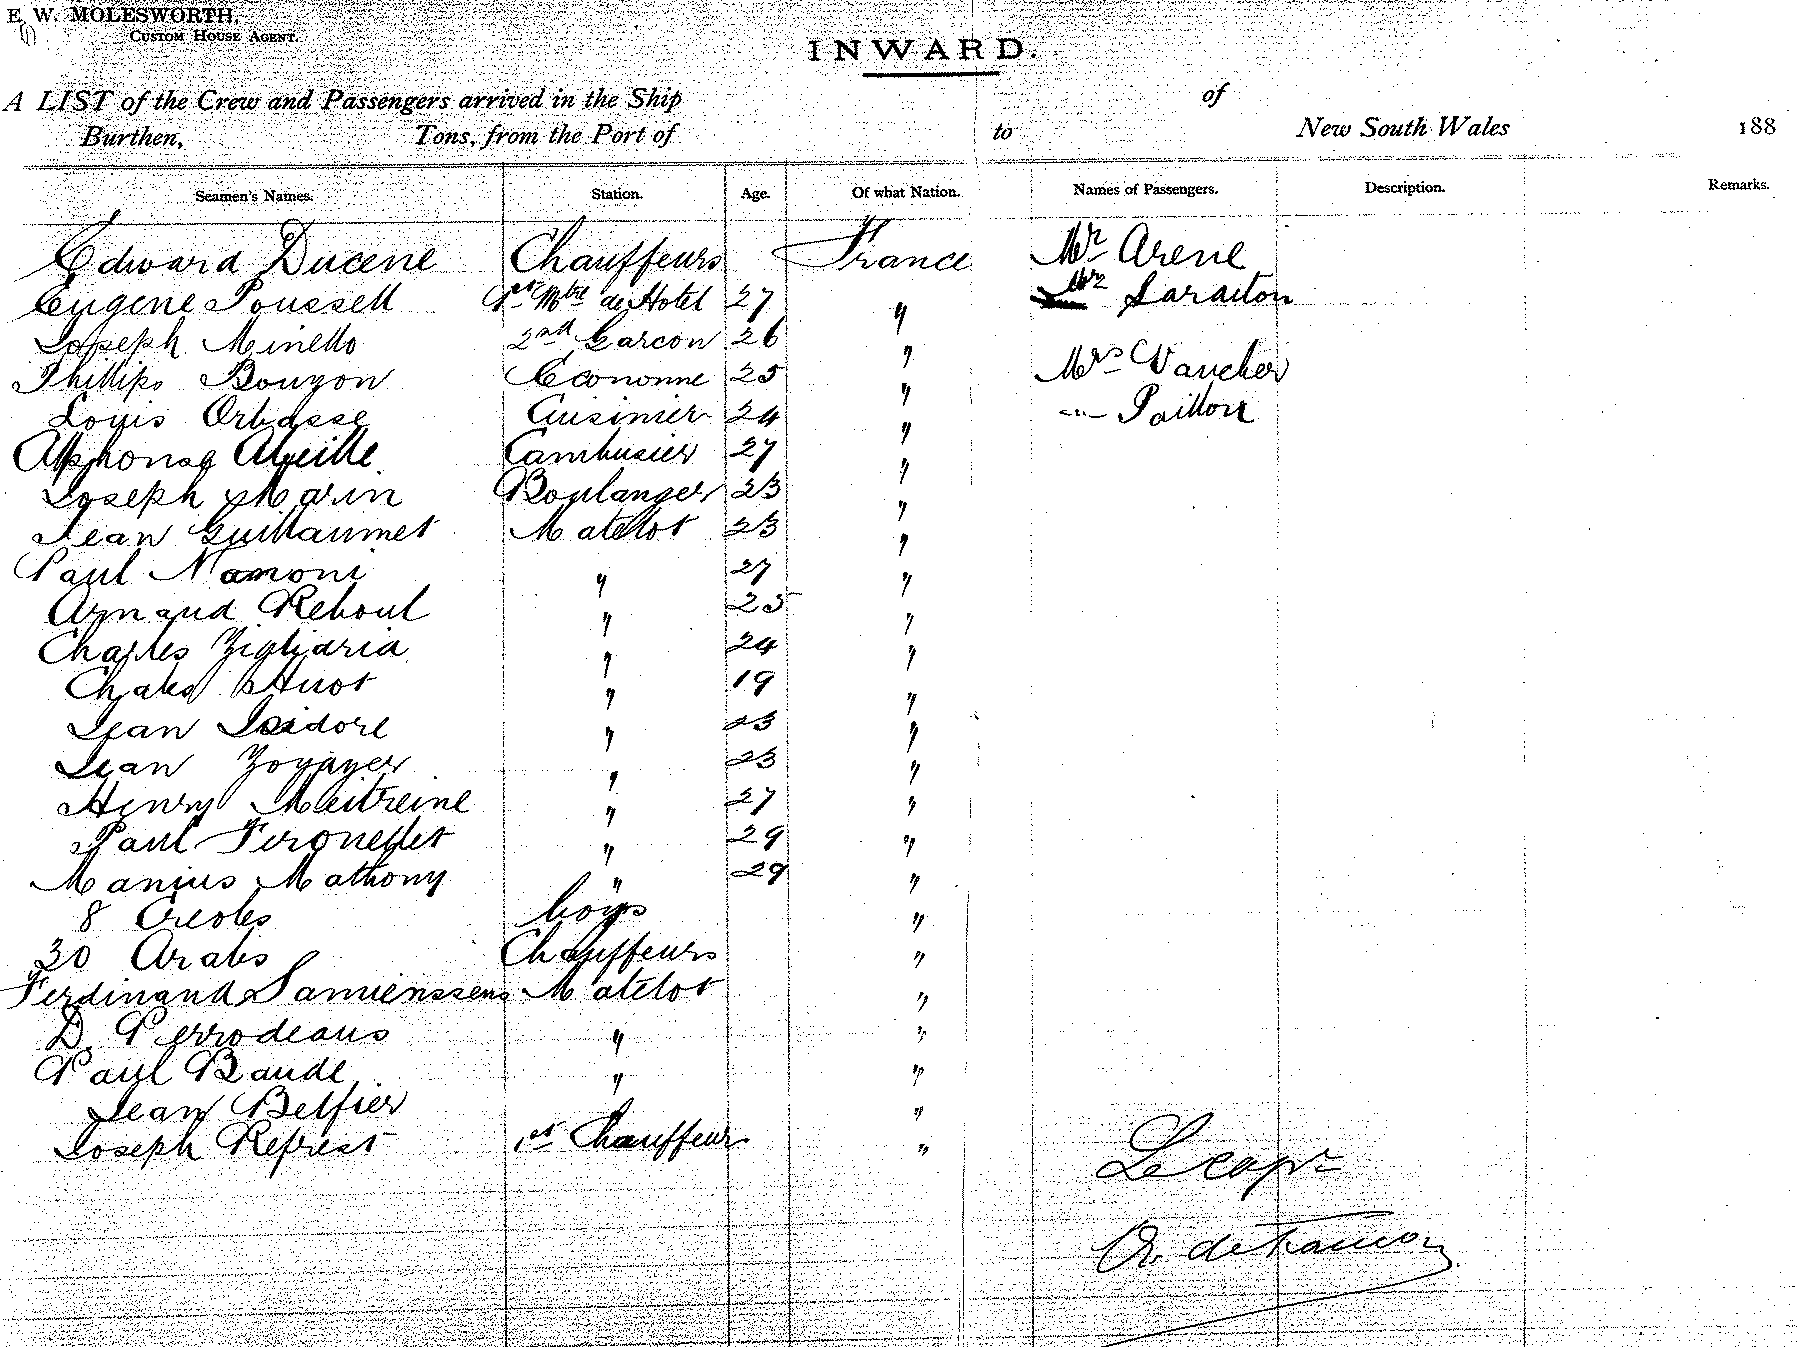 E. W. MOLESWORTH,
CUSTOM HOUSE AGENT.
INWARD.
A LIST of the Crew and Passengers arrived in the Ship of
Burthen, Tons, from the Port of to New South Wales 188
Seamen's Names. Station. Age. Of what Nation. Names of Passengers. Description. Remarks.
Edward Ducene Chauffeurs France Mr Arene
Eugene Poussell 1er Mtre de Hotel 27 " Mr Laraiton
Joseph Minello 2nd Garcon 26 "
Phillips Bouyon Econonne 25 " Mrs Vaucher
Louis Orbasse Cuisinier 24 " Paillon
Alphonse Cambusier 27 "
Joseph Marin Boulanger 23 "
Jean Guillaumet Matelot 23 "
Paul Namoni " 27 "
Arnaud Reboul " 25 "
Charles Zigliaria " 24 "
Chales Huot " 19 "
Jean Isidore " 23 "
Jean Zoyayer " 23 "
Henry Meitreine " 27 "
Paul Feronellet " 29 "
Manius Mathony " 29 "
8 Creoles boys "
30 Arabs Chauffeurs "
Ferdinand Samienssens Matelot "
D. Perrodeaus " "
Paul Baude " "
Jean Belfier " "
Joseph Refrest 1er Chauffeur "
Le capn